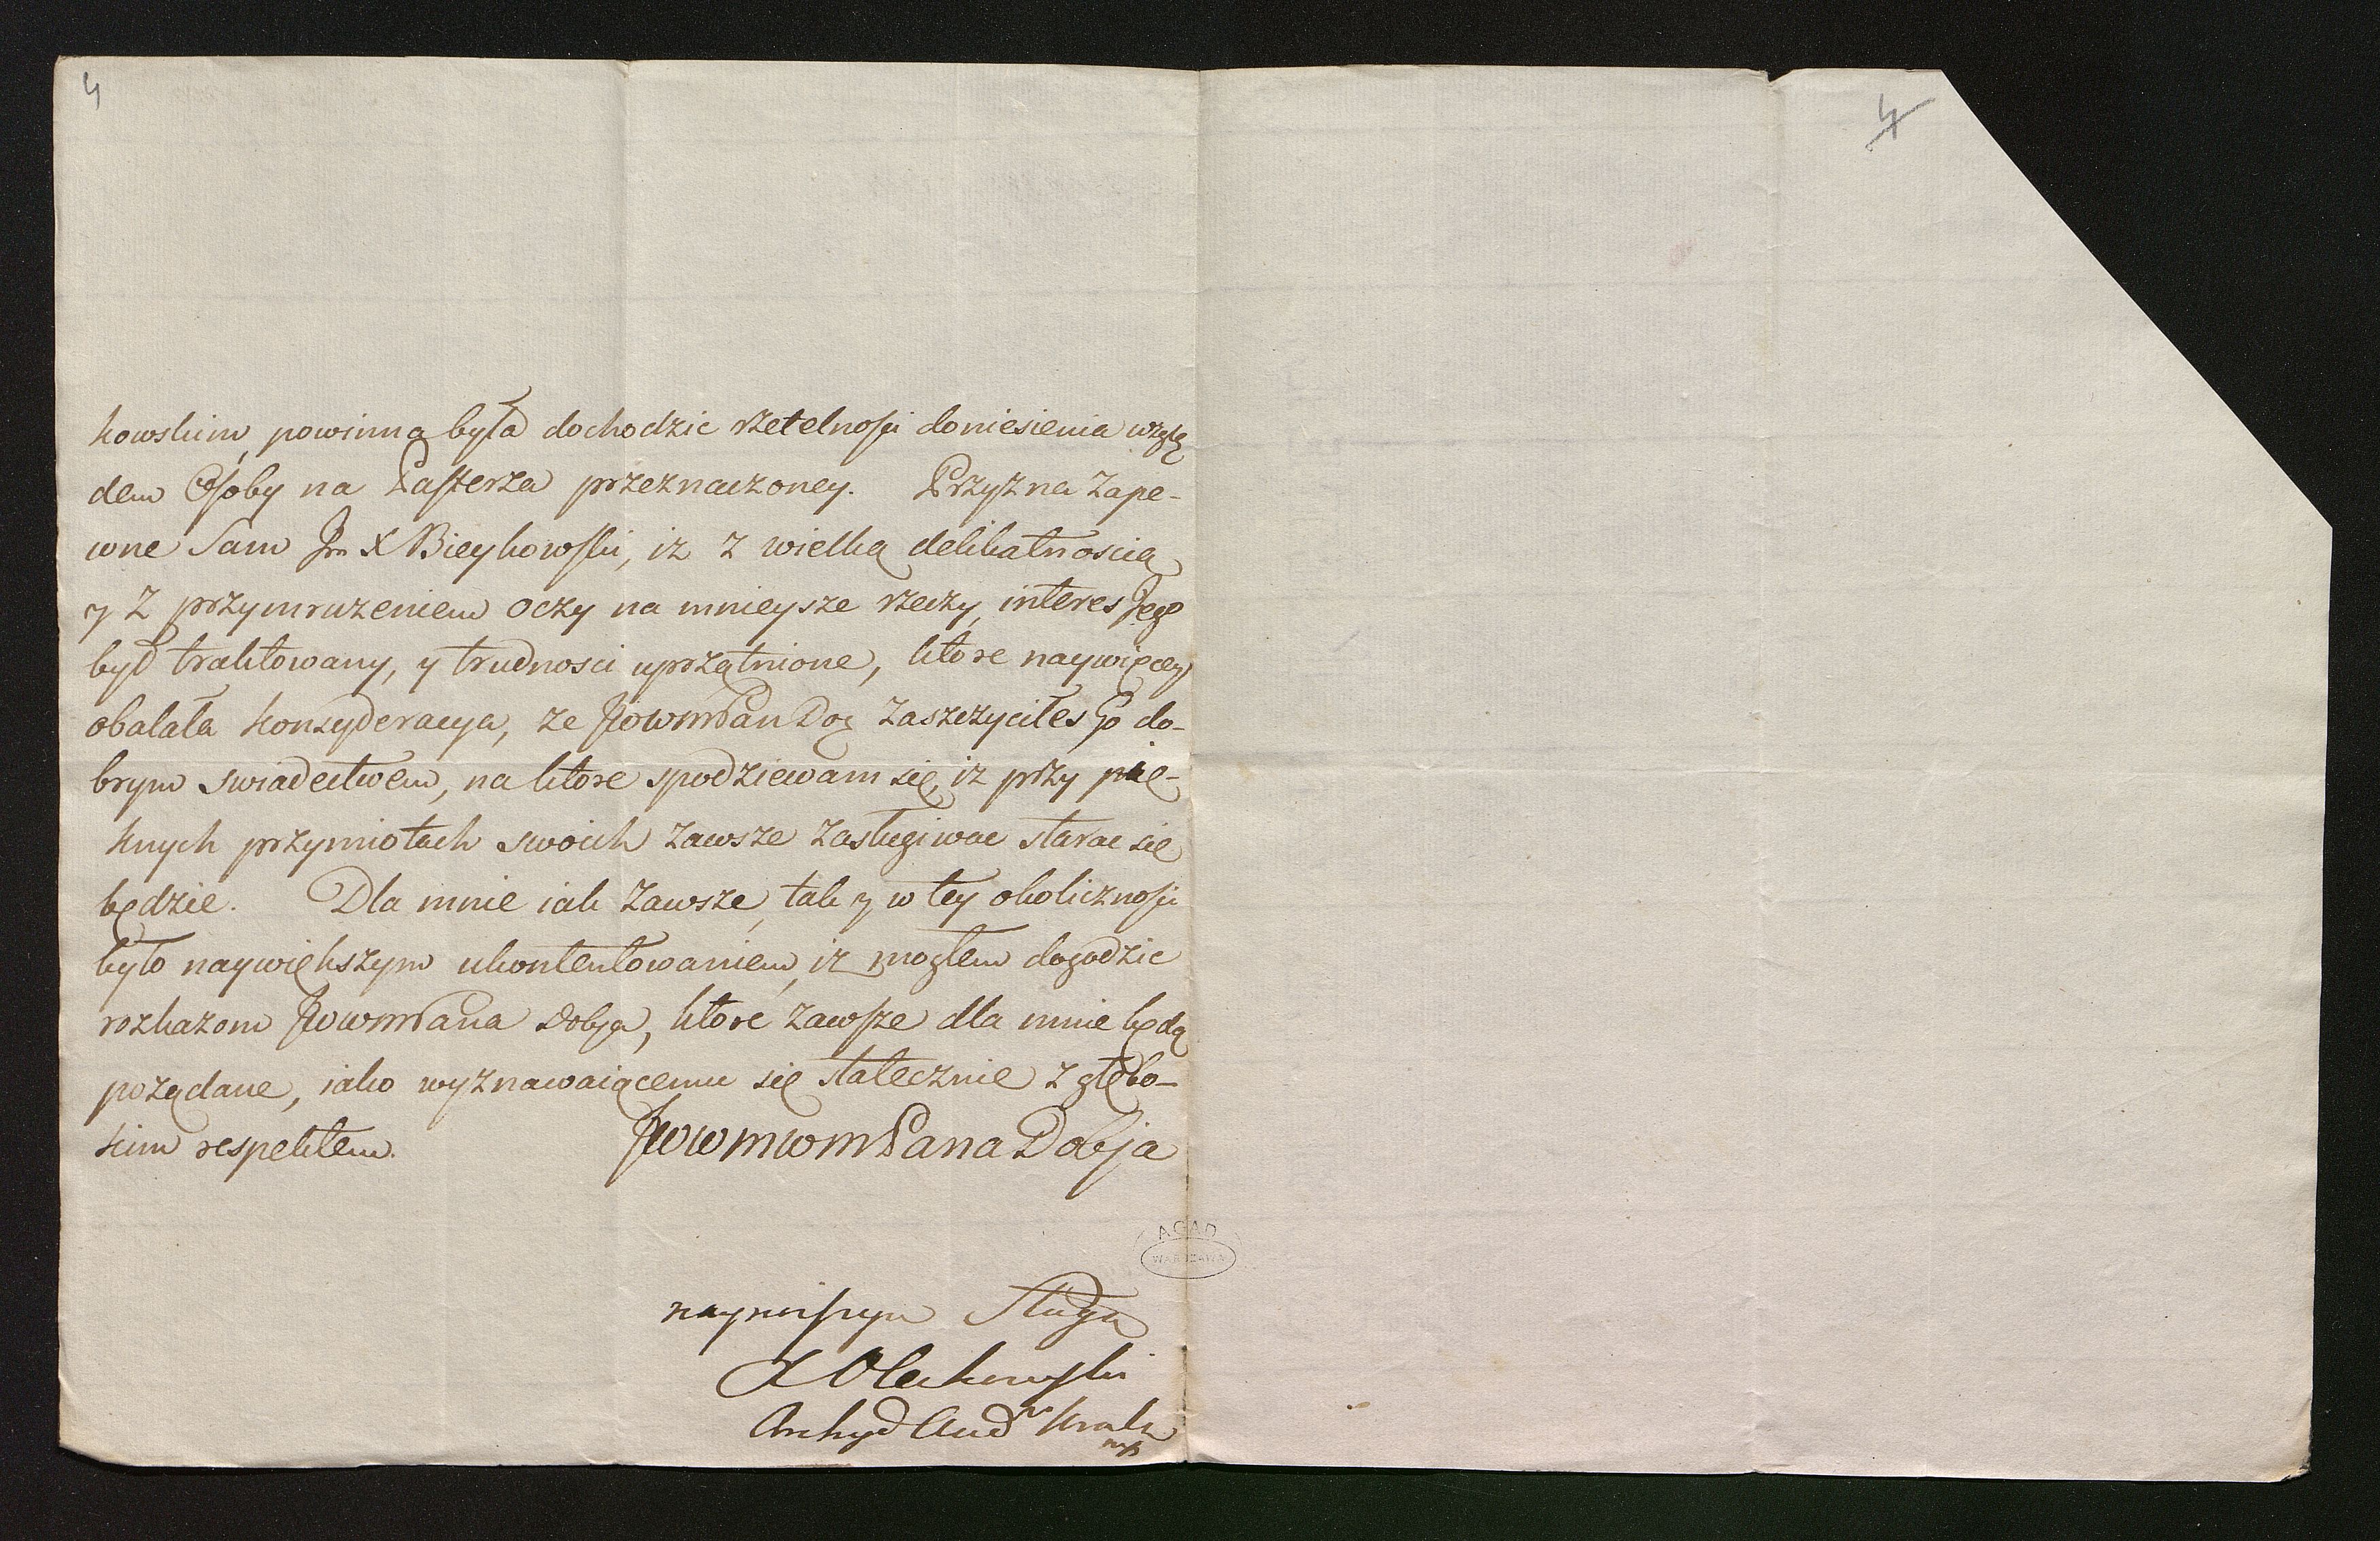 4
kowskim, powinna była dochodzic rzetelnosci doniesienia wzglę
dem Osoby na Pasterza przeznaczoney. Przyzna zape-
wne Sam Jm X Bieykowski, iz z wielką delikatnoscią
y z przymruzeniem oczy na mnieysze rzeczy, interes Jego
był traktowany, y trudnosci uprzątnione, ktore naywięcey
obalała konsyderacya, ze JWWMPan Dog zaszczyciłes Go do-
brym swiadectwem, na ktore spodziewam się, iz przy pię-
knych przymiotach swoich zawsze zasługiwac starac się
będzie. Dla mnie iak zawsze, tak y w tey okolicznosci
było naywiększym ukontentowaniem, iz mogłem dogodzic
rozkazom JWWMPana Dobja, ktore zawsze dla mnie będą
pożądane, iako wyznawaiącemu się statecznie z głębo-
kim respektem.
JWWMWMPana Dobja
AGAD
WARSZAWA
nayniszym Sługą
X Olechowski
Archyd Aud Krak
mp
4